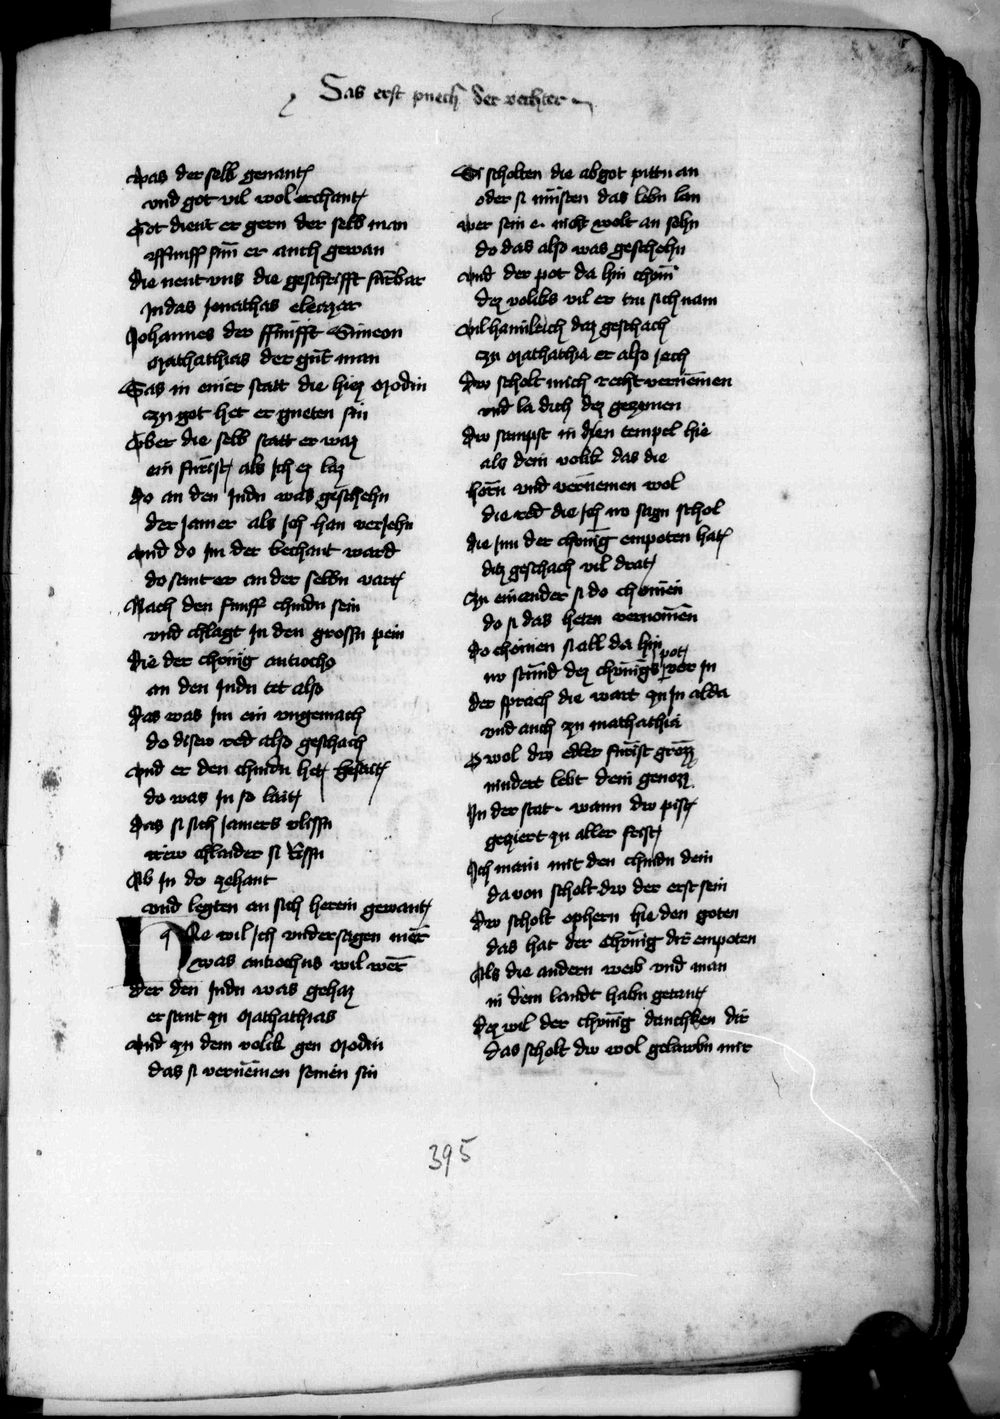 Das erst puech der vechter
Was der selb genant
vnd got vil wol erchant
Got dient er gern der selb man
ffumff sün er auch gewan
die nent vns die geschrifft fürbar
Judas Jonathas eleazar
Johannes der ffunfft Simeon
Mathathias der güt man
Sas in einer statt die hiez Modin
zu got het er gneten sin
Ober die selb statt er waz
ein fürist als ich ez laz
do an den Judn was geschehn
der Jamer als ich han veriehn
vnd do im der bechant ward
do sant er an der selbn vart
Nach den fumff chindn sein
vnd chlagt In den grossn pein
die der chönig antiocho
an den Judn tet also
das was im ein vngemach
do diser red also geschach
vnd er den chindn het gesait
do was In so lait
das si sich Jamers vlissn
irew chlaider si rissn
Ab In do zehant
vnd legten an sich herein gewant
Hie wil ich vndersagen mer
was antiochus wil wer
der den Judn was gehaz
er sant zu Mathathias
vnd zu dem volick gen Modin
das si vernemen seinen sin
Si scholten die abgot pittn an
oder si müsten das lebn lan
wer sein e nicht wolt an sehn
do das also was geschehn
vnd der pot da hin chom
dez voliks vil er zu sich nam
vil hamleich daz geschach
zu Mathathia er also iech
dw scholt mich recht vernemen
vnd la dich dez gezemen
dw sampst in dien tempel hie
als dein volik das die
horn vnd vernemen wol
die red die ich nw sagn schol
die im der chönig empoten hat
diz geschach vil drat
zu einander si do chomen
do si das heten vernomen
do chomen si all da hin
nw stünd dez chönigs pot vor in
der sprach die wart zu In alda
vnd auch zu mathathia
O wol dw edler fürist grozz
nindert lebt dein genozz
In der stat wann dw pist
geziert zu aller frist
Ich main mit den chindn dein
da von scholt dw der erst sein
dw scholt ophern hie den goten
das hat der chönig dir empoten
Als die andern weib vnd man
in dem landt habn getant
dez wil der chönig danchken dir
das scholt dw wol gelawbn mir
395